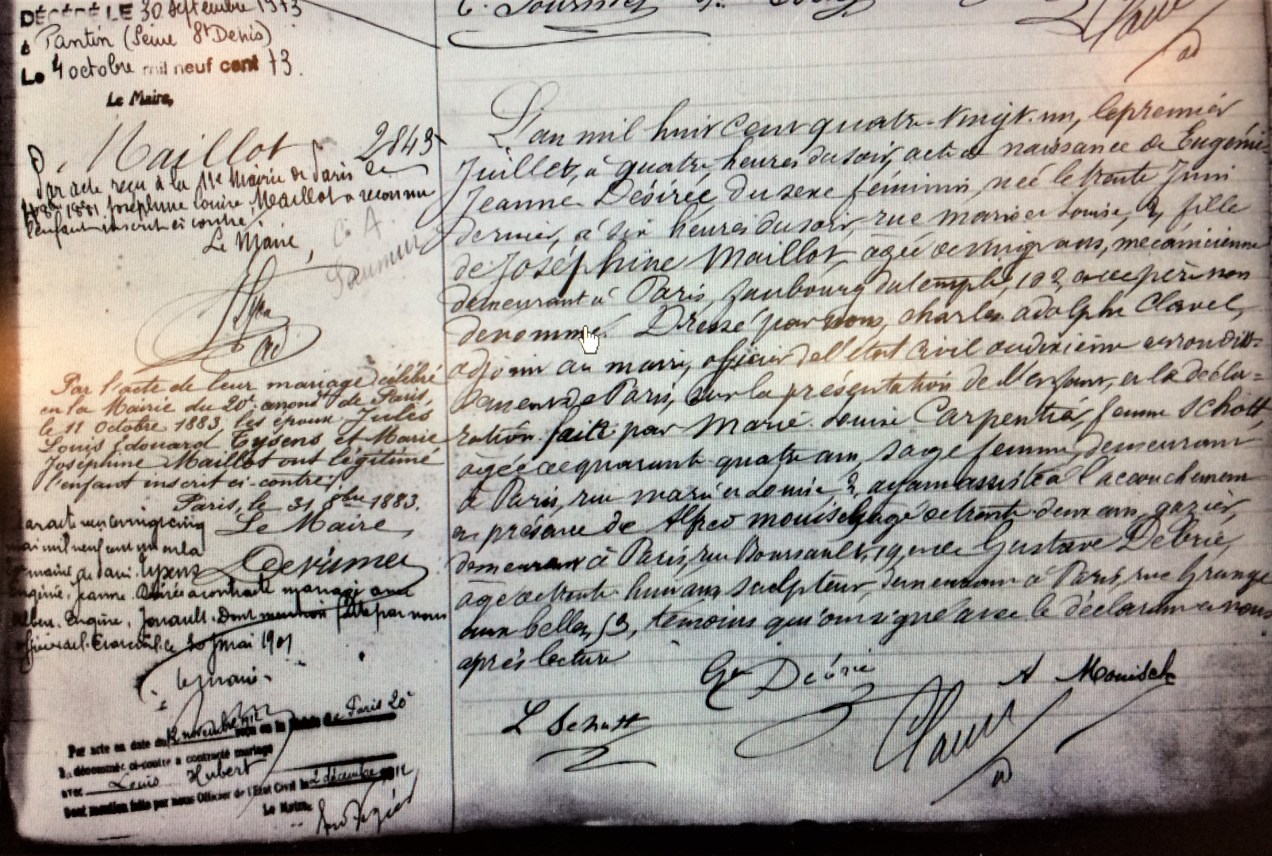 DÉCÉDÉ LE 30 septembre 1973
à Pantin (Seine St Denis)
Le 4 octobre mil neuf cent 73.
Le Maire,
Maillot 2843
Par acte reçu à la Mairie de Paris le
1881 Joséphine Louise Maillot a reconnu
l'enfant inscrit ci contre
Le Maire,
Par l'acte de leur mariage célébré
en la Mairie du 20e arrondt de Paris,
le 11 Octobre 1883, les époux Jules
Louis Edouard Tysens et Marie
Joséphine Maillot ont légitimé
l'enfant inscrit ci-contre.
Paris, le 31 8bre 1883.
Le Maire,
Par acte en vingt cinq
mai mil neuf cent un en la
mairie de Tysens
Eugénie, Jeanne, Désirée a contracté mariage avec
Albert, Eugène, Dont mention faite par nous
officier de l'Etat civil le 30 mai 1901
Par acte en date du 12 novembre 1912 reçu en la Mairie de Paris 20e
la dénommée ci-contre a contracté mariage
avec Louis Hubert
Dont mention faite par nous Officier de l'Etat Civil le 2 décembre 1912
Le Maire,
L'an mil huit cent quatre-vingt-un, le premier
Juillet, à quatre heures du soir, acte de naissance de Eugénie
Jeanne Désirée du sexe féminin, née le trente Juin
dernier, à six heures du soir, rue Marie et Louise, 3, fille
de Joséphine Maillot, âgée de vingt ans, mécanicienne
demeurant à Paris, faubourg du temple 102, et de père non
dénommé. Dressé par nous, Charles Adolphe Clavel,
adjoint au maire, officier de l'état civil du dixième arrondis=
sement de Paris, sur la présentation de l'enfant, et la décla=
ration faite par Marie Louise Carpentier, femme Schott
âgée de quarante quatre ans, sage femme, demeurant
à Paris, rue Marie et Louise, 3, ayant assisté à l'accouchement
en présence de Alfred Mouisch âgé de trente deux ans, gazier,
demeurant à Paris, rue Boursault, 19, et de Gustave Débrie,
âgé de trente huit ans, sculpteur, demeurant à Paris rue Grange
aux belles, 53, témoins qui ont signé avec le déclarant et nous
après lecture
Gve Débrié A Mouisch
L Schott Clavel